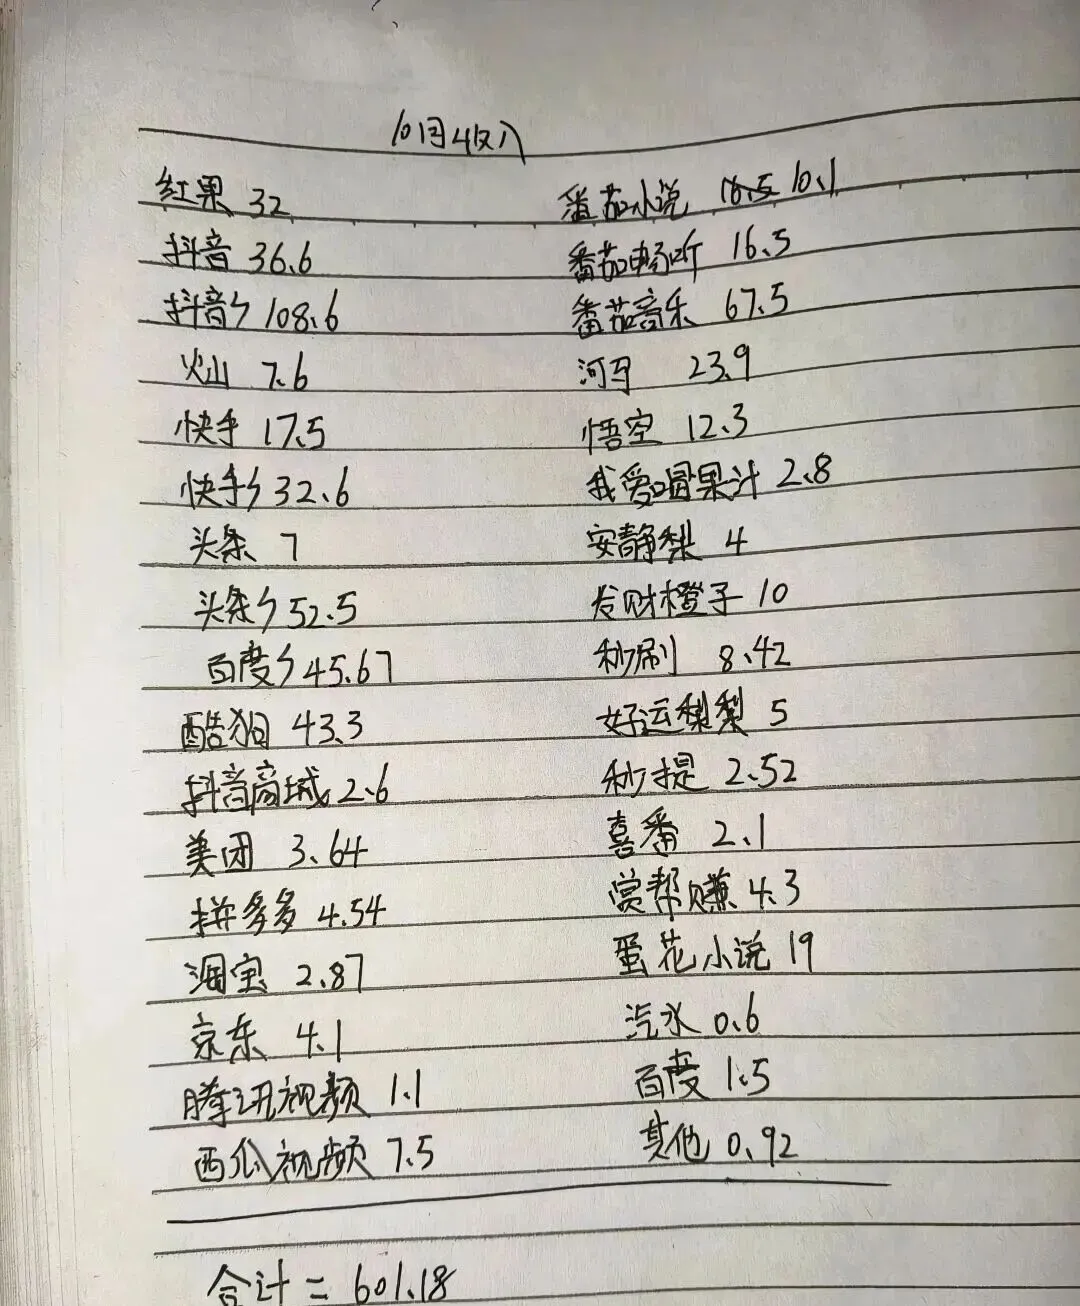 10月收入
红果 32
抖音 36.6
抖音夕 108.6
火山 7.6
快手 17.5
快手夕 32.6
头条 7
头条夕 52.5
百度夕 45.67
酷狗 43.3
抖音商城 2.6
美团 3.64
拼多多 4.54
淘宝 2.87
京东 4.1
腾讯视频 1.1
西瓜视频 7.5
番茄小说 10.1
番茄畅听 16.5
番茄音乐 67.5
河马 23.9
悟空 12.3
我爱喝果汁 2.8
安静梨 4
发财橙子 10
秒刷 8.42
好运梨梨 5
秒提 2.52
喜番 2.1
赏帮赚 4.3
蛋花小说 19
汽水 0.6
百度 1.5
其他 0.92
合计 = 601.18